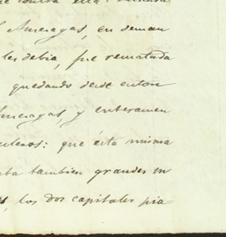 contra ella
Amézagas, en deman
les debia, fue rematada
quedando desde enton
Amezagas, y enteramen
: que ésta misma
ba tambien grandes in
, los dos capitales pia